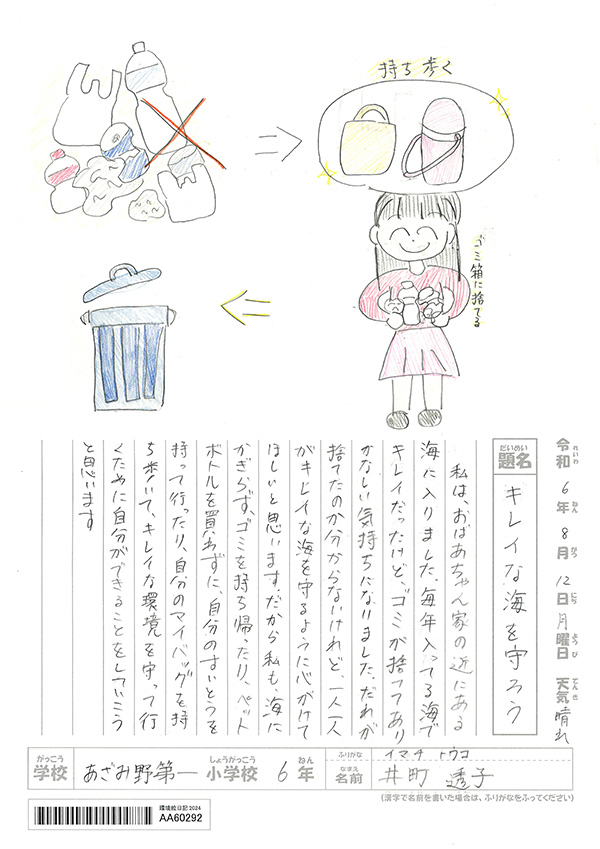 持ち歩く
ゴミ箱に捨てる
令和6年8月12日月曜日 天気 晴れ
れいわ ねん がつ にち ようび てんき
だいめい
題名 キレイな海を守ろう
私は、おばあちゃん家の近にある
海に入りました。毎年入ってる海で
キレイだったけど、ゴミが捨ってあり
かなしい気持ちになりました。だれが
捨てたのか分からないけれど、一人一人
がキレイな海を守るように心がけて
ほしいと思います。だから私も、海に
かぎらず、ゴミを持ち帰ったり、ペット
ボトルを買わずに、自分のすいとうを
持って行ったり、自分のマイバッグを持
ち歩いて、キレイな環境を守って行
くために自分ができることをしていこう
と思います
がっこう しょうがっこう ねん
学校 あざみ野第一 小学校 6年
ふりがな イマチ トウコ
なまえ
名前 井町 透子
(漢字で名前を書いた場合は、ふりがなをふってください)
環境絵日記2024
AA60292